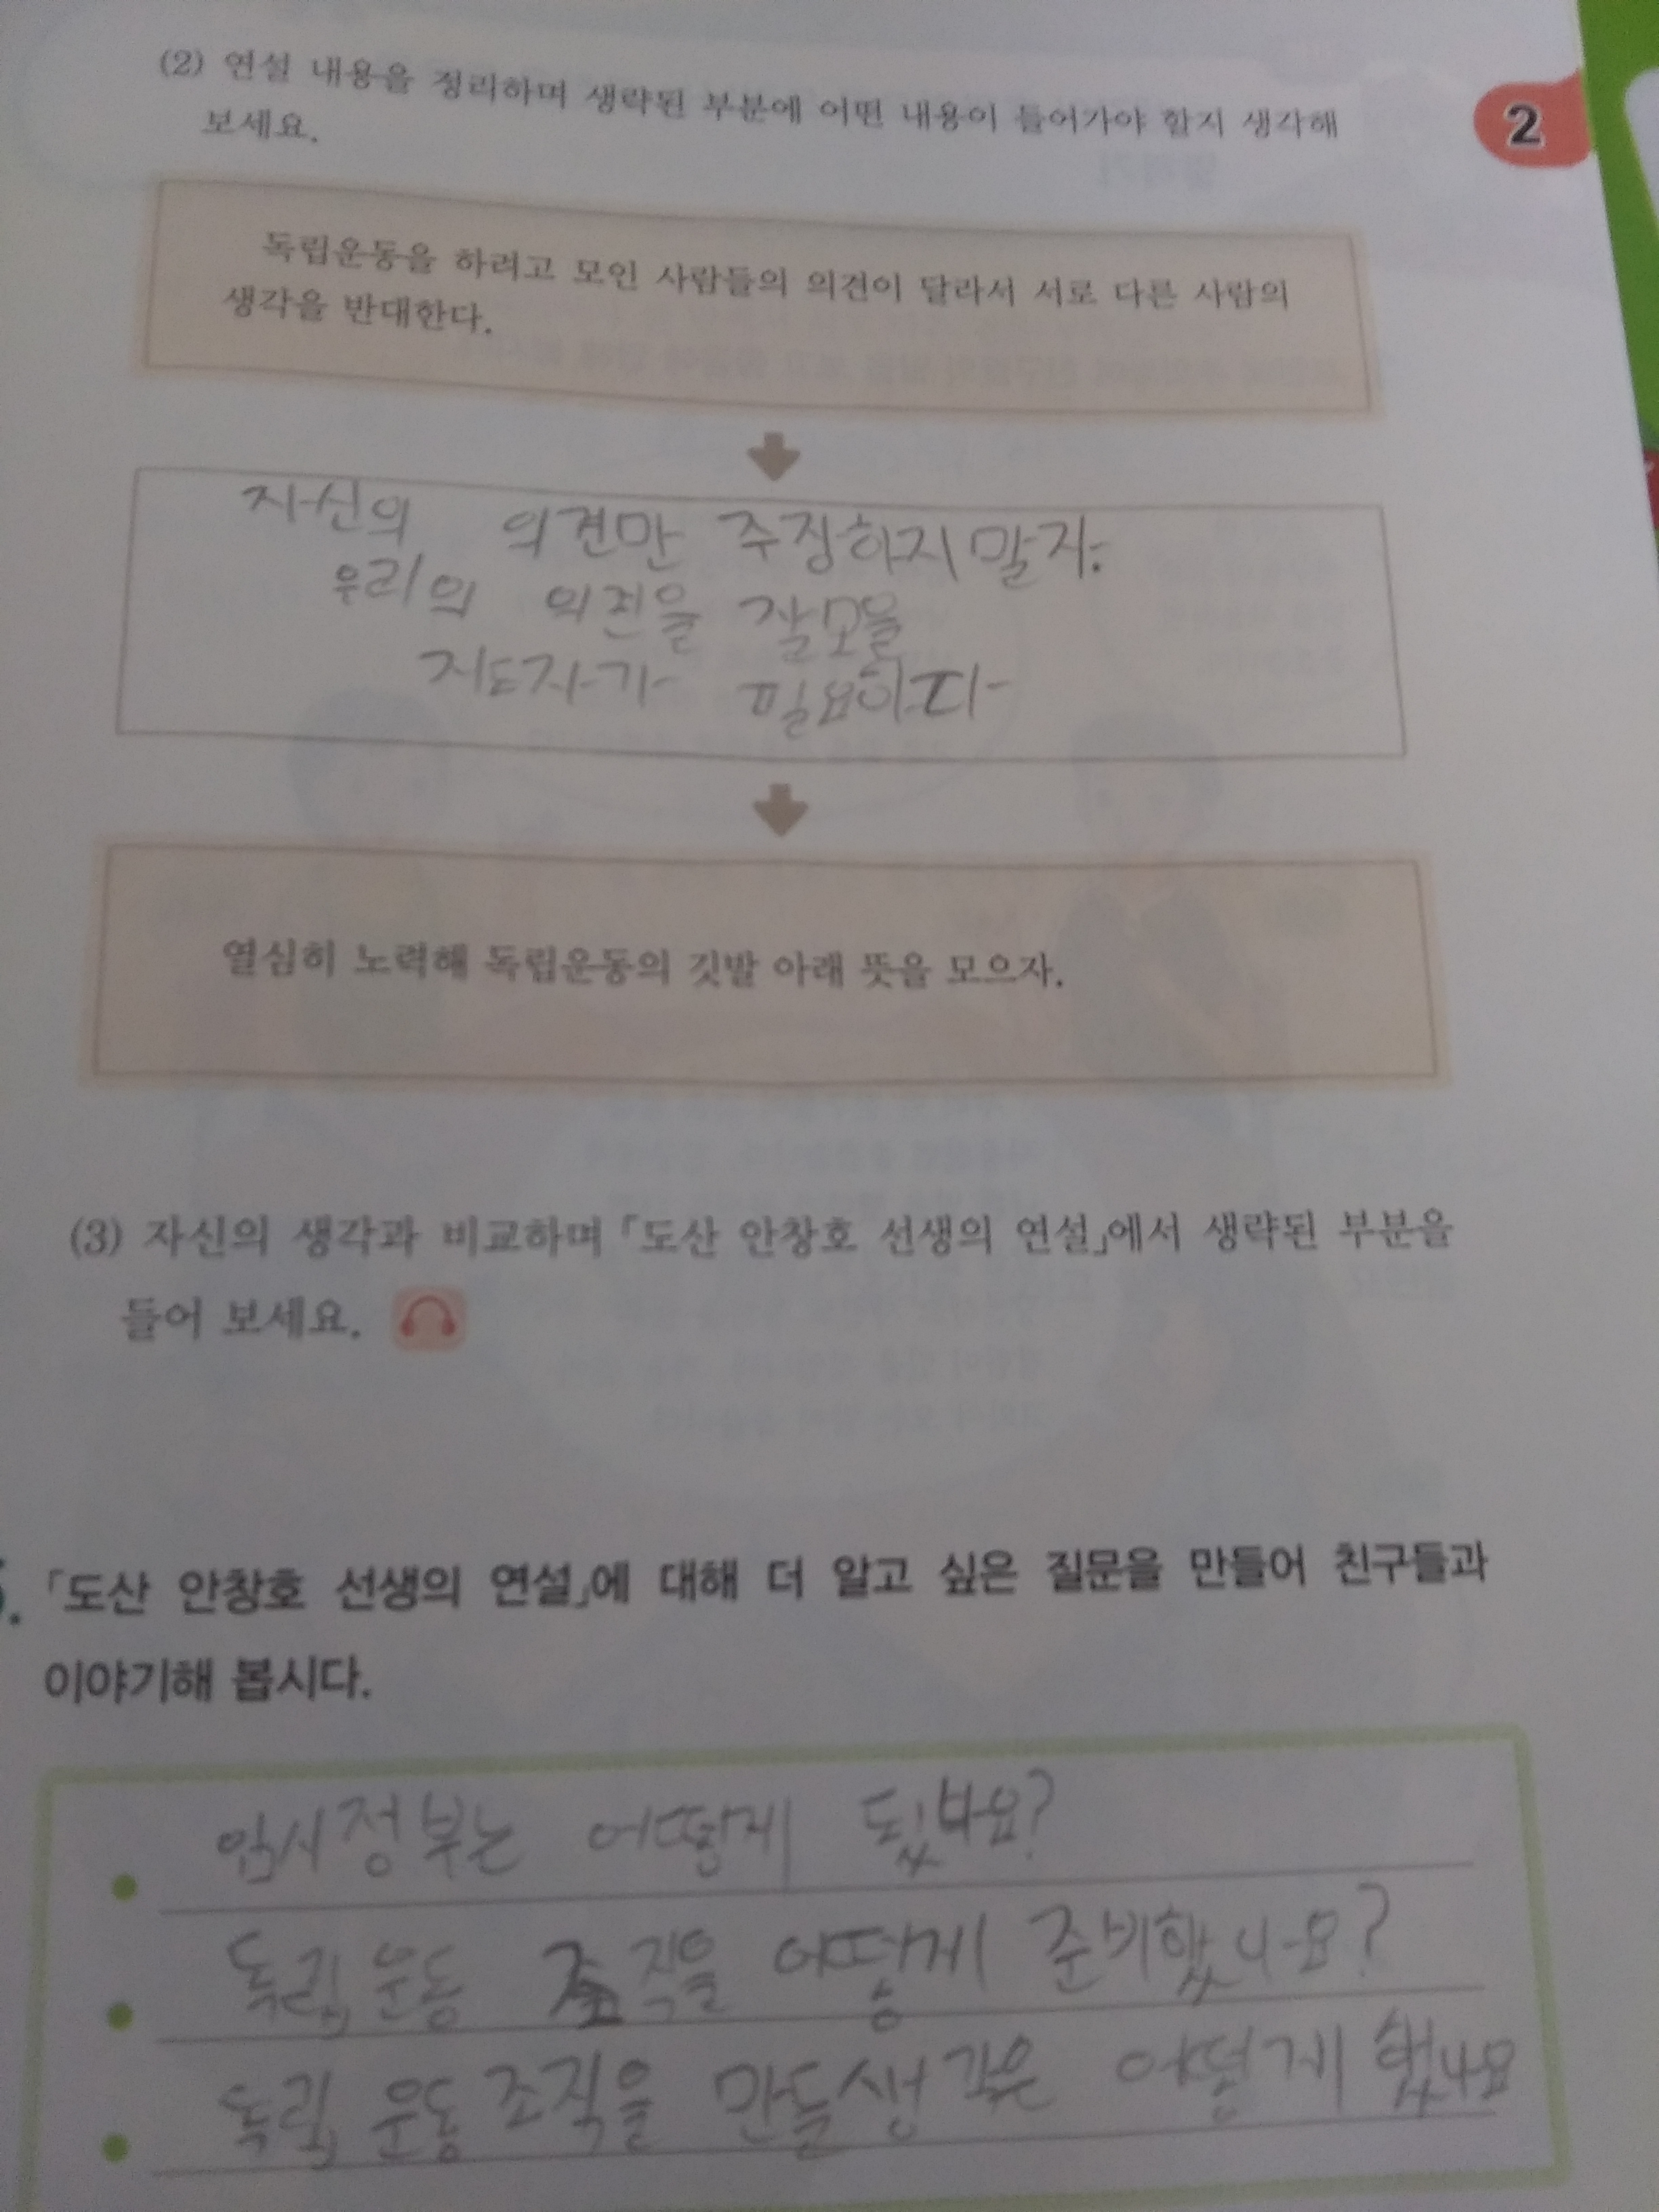 (2) 연설 내용을 정리하며 생략된 부분에 어떤 내용이 들어가야 할지 생각해
보세요.
2
독립운동을 하려고 모인 사람들의 의견이 달라서 서로 다른 사람의
생각을 반대한다.
자신의 의견만 주장하지 말자.
우리의 의견을 잘모을
지도자가 필요하다
열심히 노력해 독립운동의 깃발 아래 뜻을 모으자.
(3) 자신의 생각과 비교하며 「도산 안창호 선생의 연설」에서 생략된 부분을
들어 보세요.
「도산 안창호 선생의 연설」에 대해 더 알고 싶은 질문을 만들어 친구들과
이야기해 봅시다.
임시정부는 어떻게 됬나요?
독립운동 조직을 어떻게 준비했나요?
독립운동조직을 만들생각은 어떻게 했나요